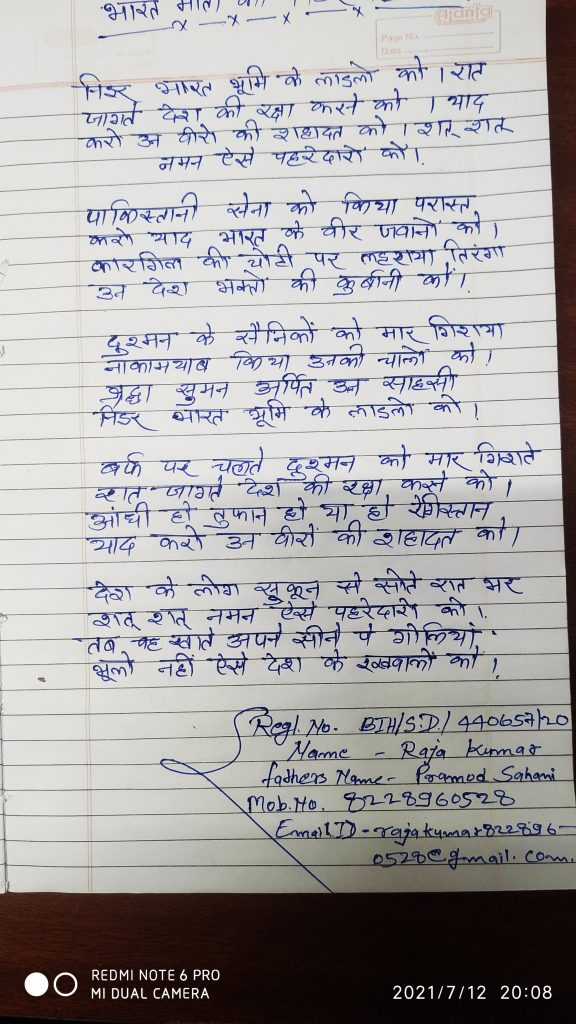 भारत माता
Ajanta
Page No.
Date
निडर भारत भूमि के लाडलो को । रात
जागते देश की रक्षा करने को । याद
करो उन वीरो की शहादत को । शत् शत्
नमन ऐसे पहरेदारों को ।
पाकिस्तानी सेना को किया परास्त
करो याद भारत के वीर जवानों को ।
कारगिल की चोटी पर लहराया तिरंगा
उन देश भक्तो की कुर्बानी को ।
दुश्मन के सैनिकों को मार गिराया
नाकामयाब किया उनकी चालो को ।
श्रद्धा सुमन अर्पित उन साहसी
निडर भारत भूमि के लाडलो को ।
बर्फ पर चलते दुश्मन को मार गिराते
रात जागते देश की रक्षा करने को ।
आंधी हो तुफान हो या हो रेगिस्तान
याद करो उन वीरों की शहादत को ।
देश के लोग सुकून से सोते रात भर
शत् शत् नमन ऐसे पहरेदारो को ।
तब वह खाते अपने सीने पे गोलियां
भूलो नहीं ऐसे देश के रखवालों को ।
Regl. No. BIH/S.D/440657/20
Name - Raja Kumar
fathers Name - Pramod Sahani
Mob. No. 8228960528
Email ID - rajakumar822896-
0528@gmail.com.
REDMI NOTE 6 PRO
MI DUAL CAMERA
2021/7/12 20:08